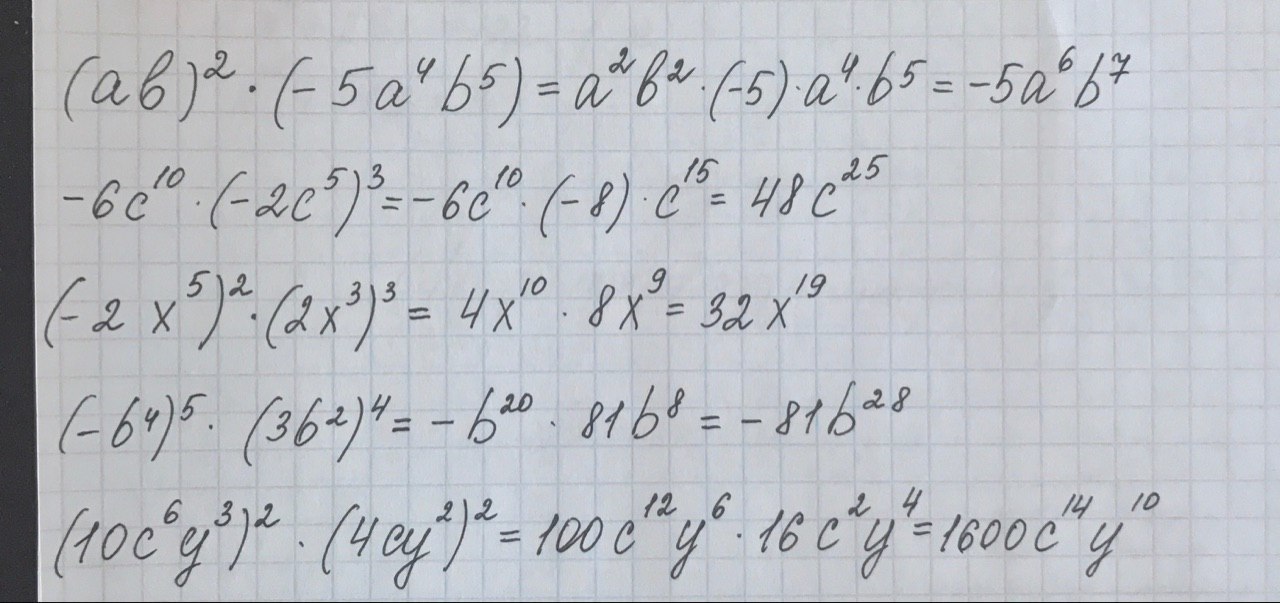 (ab)² · (-5a⁴b⁵) = a²b² · (-5) · a⁴ · b⁵ = -5a⁶b⁷
-6c¹⁰ · (-2c⁵)³ = -6c¹⁰ · (-8) · c¹⁵ = 48c²⁵
(-2x⁵)² · (2x³)³ = 4x¹⁰ · 8x⁹ = 32x¹⁹
(-b⁴)⁵ · (3b²)⁴ = -b²⁰ · 81b⁸ = -81b²⁸
(10c⁶y³)² · (4cy²)² = 100c¹²y⁶ · 16c²y⁴ = 1600c¹⁴y¹⁰